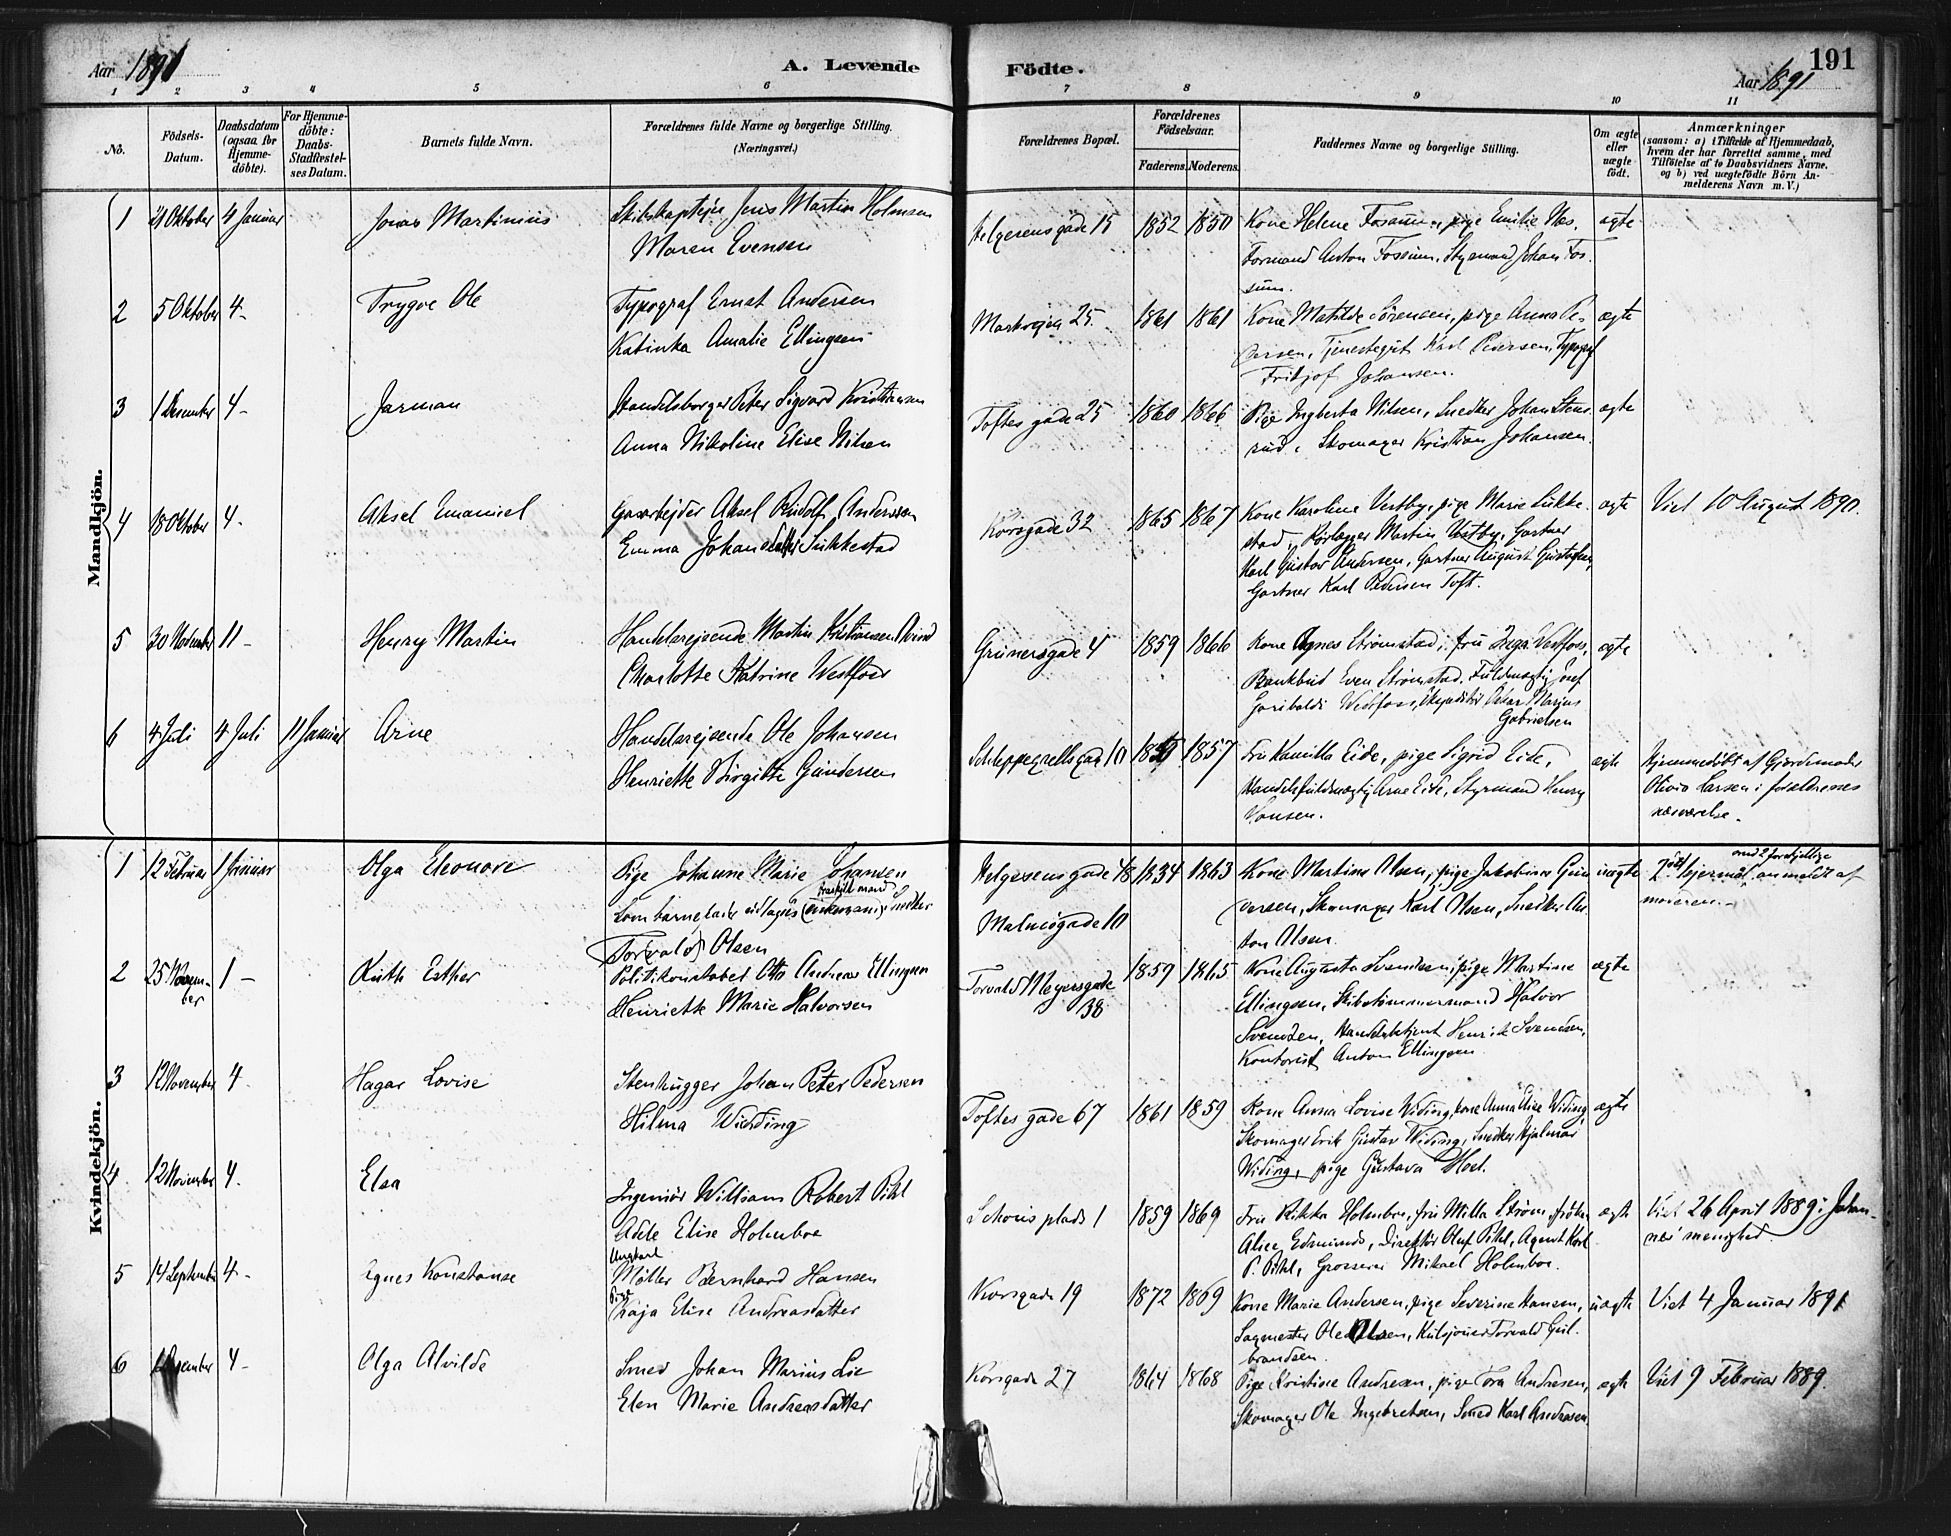 Aar 1891
A. Levende Födte.
191
Aar 1891
1 2 3 4 5 6 7 8 9 10 11
No.
Födsels-Datum.
Daabsdatum (ogsaa for Hjemme-döbte).
For Hjemme-döbte: Daabs-Stadfæstel-ses Datum.
Barnets fulde Navn.
Forældrenes fulde Navne og borgerlige Stilling. (Næringsvei.)
Forældrenes Bopæl.
Forældrenes Födselsaar.
Faderens. Moderens.
Faddernes Navne og borgerlige Stilling.
Om ægte eller uægte födt.
Anmærkninger
(saasom: a) i Tilfælde af Hjemmedaab,
hvem der har forrettet samme, med
Tilföielse af to Daabsvidners Navne,
og b) ved uægtefödte Börn An-
melderens Navn m. V.)
Mandkjön.
1 21 Oktober 4 Januar Jonas Martinius Skibskaptejn Jens Martin Holmsen Helgesensgade 15 1852 1850 Kone Helene Fossum, pige Emilie Næs, ægte
Maren Evensen Formand Anton Fossum, Styrmand Johan Fos-
sum.
2 5 Oktober 4 - Trygve Ole Typograf Ernst Andersen Markvejen 25 1861 1861 Kone Matilde Sörensen, pige Anna Pe- ægte
Katinka Amalie Ellingsen dersen, Tjenestegut Karl Pedersen, Typograf
Fritjof Johansen.
3 1 Desember 4 - Jarman Handelsborger Peter Sigvard Kristiansen Toftes gade 25 1860 1866 Pige Ingberta Nilsen, Snedker Johan Stens- ægte
Anna Nikoline Elise Nilsen rud, Skomager Kristian Johansen.
4 18 Oktober 4 - Aksel Emanuel Gasarbejder Aksel Rudolf Andersson Korsgade 32 1865 1867 Kone Karoline Vestby, pige Marie Sukke- ægte Viet 10 August 1890
Emma Johansdatter Sukkestad stad, Rörlægger Martin Vestby, Gartner
Karl Gustav Andersen, Gartner August Gustafsen,
Gartner Karl Pedersen Toft.
5 30 November 11 - Henry Martin Handelsrejsende Martin Kristiansen Grünersgade 4 1859 1866 Kone Agnes Strömstad, fru Inga Vestfoss, ægte
Charlotte Katrine Westfoss Bankbud Even Strömstad, Fuldmægtig Josef
Garibaldi Westfoss, Ekspeditör Oskar Marius
Gabrielsen
6 4 Juli 4 Juli 11 Januar Arne Handelsrejsende Ole Johansen Schleppegrellsgade 10 1857 Fru Kamilla Eide, pige Sigrid Eide, ægte Hjemmedöbt af Gjordemoder
Henriette Birgitte Gundersen Handelsfuldmægtig Arne Eide, Styrmand Henry Olivia Larsen i forældrenes
Hansen. nærværelse.
Kvindekjön.
1 12 Februar 1 Januar Olga Eleonore Pige Johanne Marie Johansen Helgesensgade 48 1834 1863 Kone Martine Olsen, pige Jakobine Gun- uægte
Som barnefader udlagdes (enkemand) Snedker Malmögade 10 versen, Skomager Karl Olsen, Snedker An-
fraskilt mand
Torvald Olsen ton Olsen.
med 2 forskjellige
anmeldt af
moderen.
2 25 Novem-ber 1 - Ruth Esther Politikonstabel Otto Andreas Ellingsen Torvald Meyersgade 38 1859 1865 Kone Augusta Svendsen, pige Martine ægte
Henriette Marie Halvorsen Ellingsen, Skibstömmermand Halvor
Svendsen, Handelsbetjent Henrik Svendsen,
Kontorist Anton Ellingsen
3 12 November 4 - Hagar Lovise Stenhugger Johan Peter Pedersen Toftes gade 67 1861 1859 Kone Anna Lovise Widing, kone Anna Alise Widing, ægte
Hilma Widing Skomager Erik Gustav Widing, Snedker Hjalmar
Widing, pige Gustava Moel.
4 12 November 4 - Elsa Ingeniör William Robert Pihl Schous plads 1 1859 1869 Fru Rikka Holmboe, fru Milla Ström, fröken ægte Viet 26 April 1889 i Johan-
Adele Elise Holmboe Alice Edmunds, Direktör Oluf Pihl, Agent Karl nes menighed
P. Pihl, Grosserer Mikael Holmboe.
5 14 September 4 - Agnes Konstanse Ungkarl Möller Bernhard Hansen Korsgade 19 1872 1869 Kone Marie Andersen, pige Severine Hansen, uægte Viet 4 Januar 1891
Pige Kaja Elise Andreasdatter Sagmester Ole Olsen, Kulsjouer Torvald Gul-
brandsen.
6 Desember 4 - Olga Alvilde Smed Johan Marius Lie Korsgade 27 1864 1868 Pige Kristine Andresen, pige Tora Andresen, ægte Viet 9 Februar 1889.
Elen Marie Andreasdatter Skomager Ole Ingebretsen, Smed Karl Andresen.